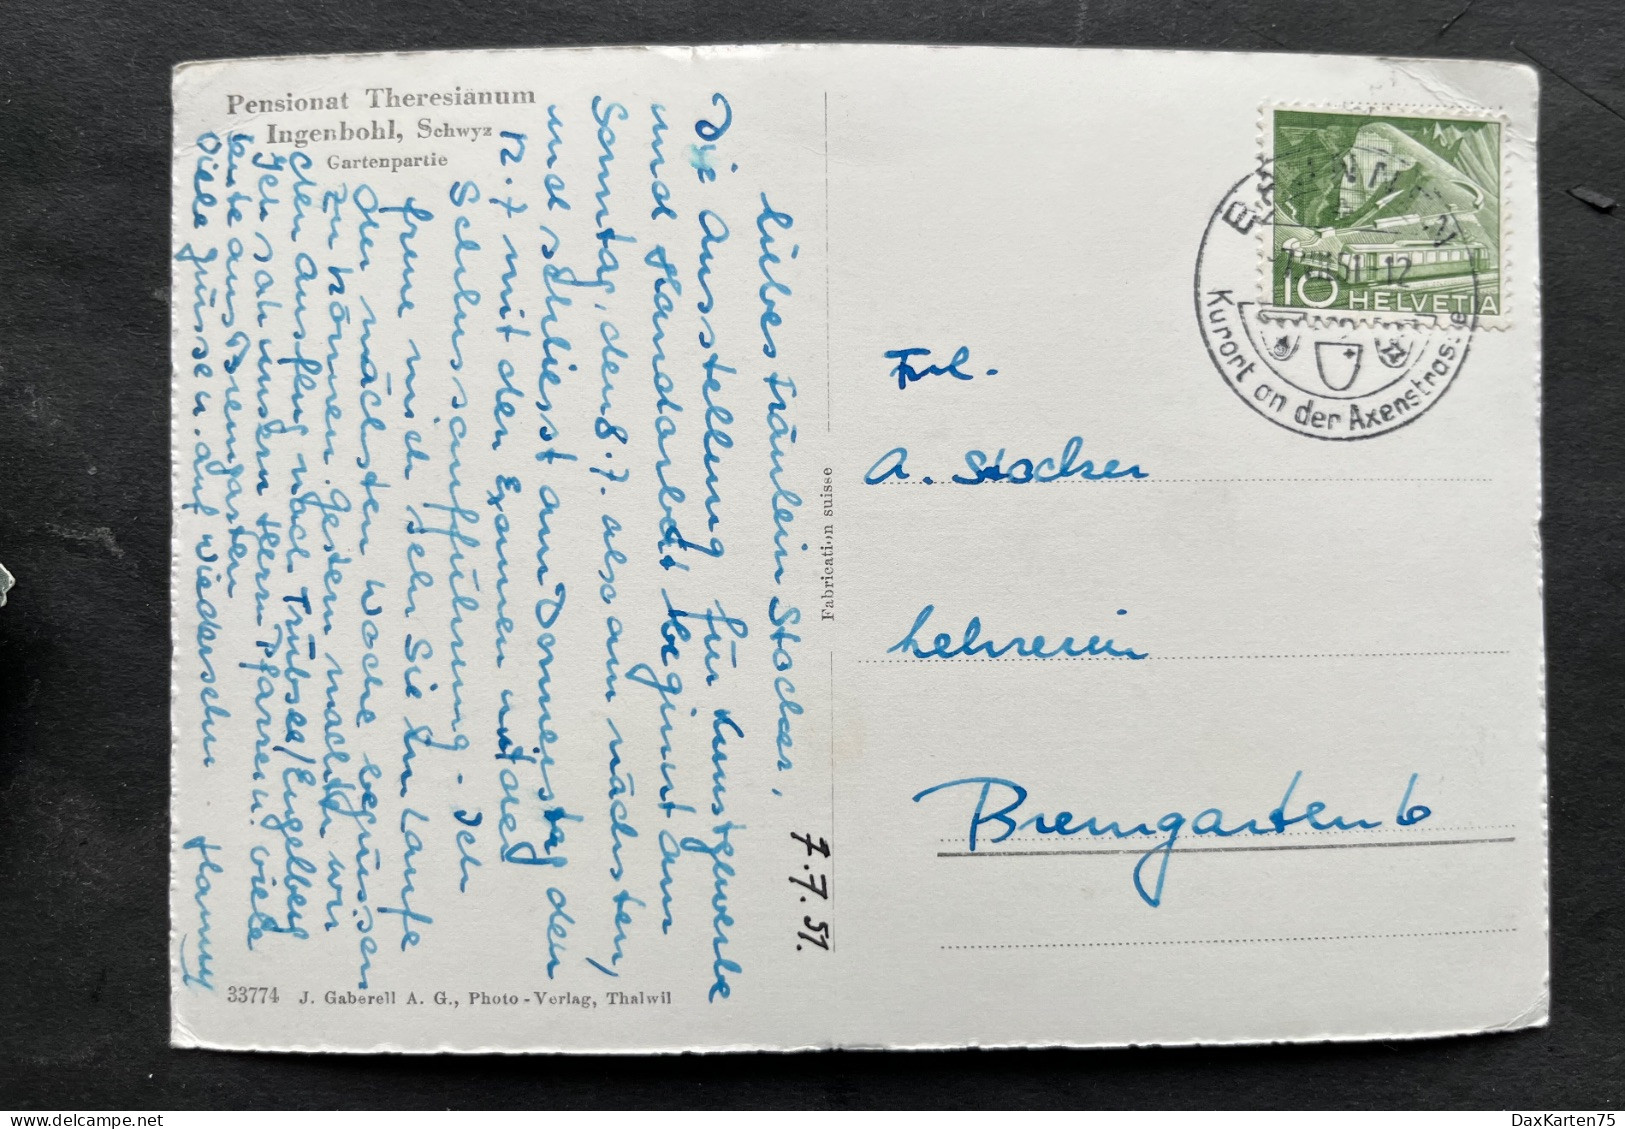 Pensionat Theresiänum
Ingenbohl, Schwyz
Gartenpartie
Liebes Fräulein Stocker,
Die Ausstellung für Kunstgewerbe
und Handarbeit beginnt am
Sonntag, den 8.7. also am nächsten,
und schliesst am Donnerstag den
12.7 mit den Examen und der
Schlussaufführung. Ich
freue mich sehr Sie im Laufe
der nächsten Woche begrüssen
zu können. Gestern machten wir
den Ausflug nach Trübsee/Engelberg
Ich sah unsern Herrn Pfarrer u. viele
Leute aus Bremgarten
Viele Grüsse u. auf Wiedersehn
Hanny
7.7.51.
33774 J. Gaberell A. G., Photo-Verlag, Thalwil
Fabrication suisse
BRUNNEN
51-12
Kurort an der Axenstrasse
10 HELVETIA
Frl.
A. Stocker
Lehrerin
Bremgarten b
DaxKarten75